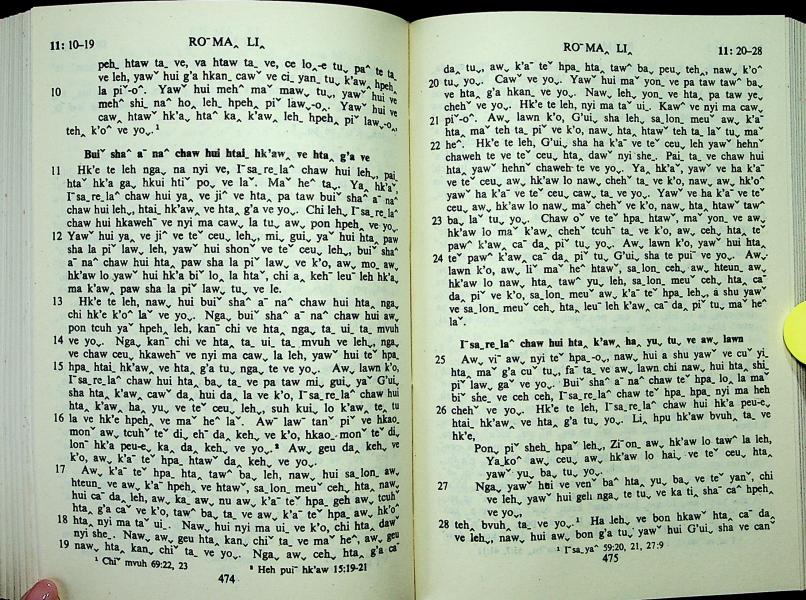 11: 10–19
RO¯ MA˰ LI˰
peh_ htaw ta_ ve, va htaw ta_ ve, ce lo˰-e tu˯ pa^ te ta_
ve leh, yawˇ hui g'a hkan_ cawˇ ve ci_ yan_ tu˯ k'aw˰ hpeh˰
10 la piˇ-o^. Yawˇ hui mehˇ ma_ mawˇ tu˯, yawˇ hui ve
mehˇ shi_ na^ ho˰ leh_ hpeh˰ piˇ law˯-o˰. Yawˇ hui ve
caw˰ htawˇ hk'a˰ hta^ ka˰ k'aw˰ leh_ hpeh˰ piˇ law˯-o˰,
teh˰ k'o^ ve yo˯.¹
Buiˇ sha^ a¯ na^ chaw hui htai_ hk'aw˰ ve hta˰ g'a ve
11 Hk'e te leh nga˰ na nyi ve, I¯sa_re_la^ chaw hui leh˯, pai_
htaˇ hk'a ga˰ hkui htiˇ po˰ ve laˇ. Maˇ he^ ta˰. Ya˰ hk'aˇ,
I¯sa_re_la^ chaw hui ya˰ ve ji^ ve hta˰ pa taw buiˇ sha^ a¯ na^
chaw hui leh˯, htai_ hk'aw˰ ve hta˰ g'a ve yo˯. Chi leh˰ I¯sa_re_la^
chaw hui hkaweh¯ ve nyi ma caw˰ la tu˯ aw˰ pon hpeh˰ ve yo˯.
12 Yawˇ hui ya˰ ve ji^ ve teˇ ceu˰ leh˯, mi˰ gui˰ yaˇ hui hta˰ paw
sha la piˇ law˰ leh, yawˇ hui shonˇ ve teˇ ceu˰ leh˯, buiˇ sha^
a¯ na^ chaw hui hta˰ paw sha la piˇ law˰ ve k'o, aw˰ mo˰ aw˰
hk'aw lo yawˇ hui hk'a biˇ lo˰ la htaˇ, chi a˰ keh¯ leuˇ leh hk'a˰
ma k'aw˰ paw sha la piˇ law˰ tu˯ ve le.
13 Hk'e te leh, naw˰ hui buiˇ sha^ a¯ na^ chaw hui hta˰ nga˰
chi hk'e k'o^ laˇ ve yo˯. Nga˰ buiˇ sha^ a¯ na^ chaw hui aw˰
pon tcuh yaˇ hpeh˰ leh, kan¯ chi ve hta˰ nga˰ ta_ ui_ ta_ mvuh
14 ve yo˯. Nga˰ kan¯ chi ve hta˰ ta_ ui_ ta_ mvuh ve leh˯, nga˰
ve chaw ceu˰ hkaweh¯ ve nyi ma caw˰ la leh, yawˇ hui te^ hpa_
15 hpa htai_hk'aw˰ ve hta˰ g'a tu˯ nga˰ te ve yo˯. Aw˰ lawn k'o,
I¯sa_re_la^ chaw hui hta˰ ba˰ ta_ ve pa taw mi˰ gui˰ yaˇ G'ui˰
sha hta˰ k'aw˰ cawˇ da˰ hui da˰ la ve k'o, I¯sa_re_la^ chaw hui
hta˰ k'aw˰ ha˰ yu˰ ve teˇ ceu˰ leh˯, suh kui˰ lo k'aw˰ te˰ tu
16 la ve hk'e hpeh˰ ve maˇ he^ laˇ. Aw¯ lawˇ tan^ piˇ ve hkao_
monˇ aw˰ tcuhˇ teˇ di˰ eh¯ da˰ keh˰ ve k'o, hkao_monˇ teˇ di˰
lon^ hk'a peu-e˰ ka˰ da˰ keh˰ ve yo˯.² Aw˰ geu da˰ keh˰ ve
k'o, aw˰ k'a¯ teˇ hpa_ htawˇ da˰ keh˰ ve yo˯.
17 Aw˰ k'a¯ teˇ hpa_ hta˰ tawˇ ba˰ leh, naw˰ hui sa˰lon_ aw˰
hteun_ ve aw˰ k'a¯ hpeh˰ ve htawˇ, sa˰lon_ meuˇ ceh˰ hta˰ naw˰
hui caˇ da˰ leh, aw˰ ka˰ aw˰ nu aw˰ k'a¯ teˇ hpa_ geh aw˰ tcuh
hta˰ g'a caˇ ve k'o, tawˇ ba˰ ta_ ve aw˰ k'a¯ teˇ hpa_ aw˰ hk'o^
18 hta˰ nyi ma taˇ ui_. Naw˰ hui nyi ma ui_ ve k'o, chi hta˰ dawˇ
nyi she_. Naw˰ aw˰ geu hta˰ kan˰ chiˇ ta_ ve ma˰ he^, aw˰ geu
19 naw˰ hta˰ kan˰ chiˇ ta_ ve yo˯. Nga˰ aw˰ ceh˰ hta˰ g'a caˇ
¹ Chiˇ mvuh 69:22, 23
² Heh pui¯ hk'aw 15:19-21
474
RO¯ MA˰ LI˰
11: 20–28
da˰ tu˯, aw˰ k'a¯ teˇ hpa_ hta˰ tawˇ ba˰ peu˰ teh˰, naw˰ k'o^
20 tu˯ yo˯. Cawˇ ve yo˯. Yawˇ hui maˇ yon_ ve pa taw tawˇ ba˰
ve hta˰ g'a hkan_ ve yo˯. Naw˰ leh˰ yon_ ve hta˰ pa taw ye˰
chehˇ ve yo˯. Hk'e te leh, nyi ma taˇ ui_. Kawˇ ve nyi ma caw˰
21 piˇ-o^. Aw˰ lawn k'o, G'ui˰ sha leh˰ sa˰lon_ meuˇ aw˰ k'a¯
hta˰ maˇ teh ta_ piˇ ve k'o, naw˰ hta˰ htawˇ teh ta_ laˇ tu˯ maˇ
22 he^. Hk'e te leh, G'ui˰ sha ha k'aˇ ve teˇ ceu˰ leh yawˇ hehnˇ
chaweh te ve teˇ ceu˰ hta˰ dawˇ nyi she_. Pai_ ta_ ve chaw hui
hta˰ yawˇ hehnˇ chaweh¯ te ve yo˯. Ya˰ hk'aˇ, yawˇ ve ha k'aˇ
ve teˇ ceu˰ aw˰ hk'aw lo naw˰ chehˇ ta_ ve k'o, naw˰ aw˰ hk'o^
yawˇ ha k'aˇ ve teˇ ceu˰ caw˰ ta_ ve yo˯. Yawˇ ve ha k'aˇ ve teˇ
ceu˰ aw˰ hk'aw lo naw˰ maˇ chehˇ ve k'o, naw˰ hta˰ htawˇ tawˇ
23 ba˰ laˇ tu˯ yo˯. Chaw oˇ ve teˇ hpa_ htawˇ, maˇ yon_ ve aw˰
hk'aw lo maˇ k'aw˰ chehˇ tcuhˇ ta_ ve k'o, aw˰ ceh˰ hta˰ te^
pawˇ k'aw˰ ca¯ da˰ piˇ tu˯ yo˯. Aw˰ lawn k'o, yawˇ hui hta˰
24 teˇ pawˇ k'aw˰ ca¯ da˰ piˇ tu˯, G'ui˰ sha te pui¯ ve yo˯. Aw˰
lawn k'o, naw˰ aw˰ liˇ maˇ he^ htawˇ, sa˰lon_ ceh˰ aw˰ hteun_ aw˰
hk'aw lo naw˰ hta˰ tawˇ yu˰ leh, sa˰lon_ meuˇ ceh˰ hta˰ ca¯
da˰ piˇ ve k'o, sa˰lon_ meuˇ aw˰ k'a¯ teˇ hpa_ leh˯, a˰ shu yawˇ
ve sa˰lon_ meuˇ ceh˰ hta˰ leuˇ leh k'aw˰ ca¯ da˰ piˇ tu˯ maˇ he^
laˇ.
I¯sa_re_la^ chaw hui hta˰ k'aw˰ ha˰ yu˰ tu˯ ve aw˰ lawn
25 Aw˰ vi¯ aw˰ nyi teˇ hpa_-o˰, naw˰ hui a˰ shu yawˇ ve cuˇ yi˰
hta˰ maˇ g'a cuˇ tu˯, fa¯ ta_ ve aw˰ lawn_ chi naw˰ hui hta˰ shi_
piˇ law˰ gaˇ ve yo˯. Buiˇ sha^ a¯ na^ chaw teˇ hpa_ lo˰ la maˇ
biˇ she_ ve ceh ceh, I¯sa_re_la^ chaw teˇ hpa_ hpa_ nyi ma heh
26 chehˇ ve yo˯. Hk'e te leh, I¯sa_re_la^ chaw hui hk'a peu-e˰
htai_ hk'aw˰ ve hta˰ g'a tu˯ yo˯. Li˰ hpu hk'aw bvuh˰ ta_ ve
hk'e,
Pon˰ piˇ sheh_ hpaˇ leh˯, Zi¯on_ aw˰ hk'aw lo tawˇ la leh,
Ya˰ko^ aw˰ ceu˰ aw˰ hk'aw lo hai˰ ve teˇ ceu˰ hta˰
yawˇ yu˰ ba˰ tu˯ yo˯.
27 Nga˰ yawˇ hui ve venˇ ba^ hta˰ yu˰ ba˰ ve teˇ yanˇ, chi
ve leh˰ yawˇ hui geh nga˰ te tu˯ ve ka tiˇ sha¯ caˇ hpeh˰
ve yo˯,
28 teh˰ bvuh˰ ta_ ve yo˯.¹ Ha leh˰ ve bon hkawˇ hta˰ ca¯ da˰
ve leh˯, naw˰ hui aw˰ bon g'a tu˯ yawˇ hui G'ui˰ sha ve can¯
¹ I¯sa˰ya^ 59:20, 21, 27:9
475